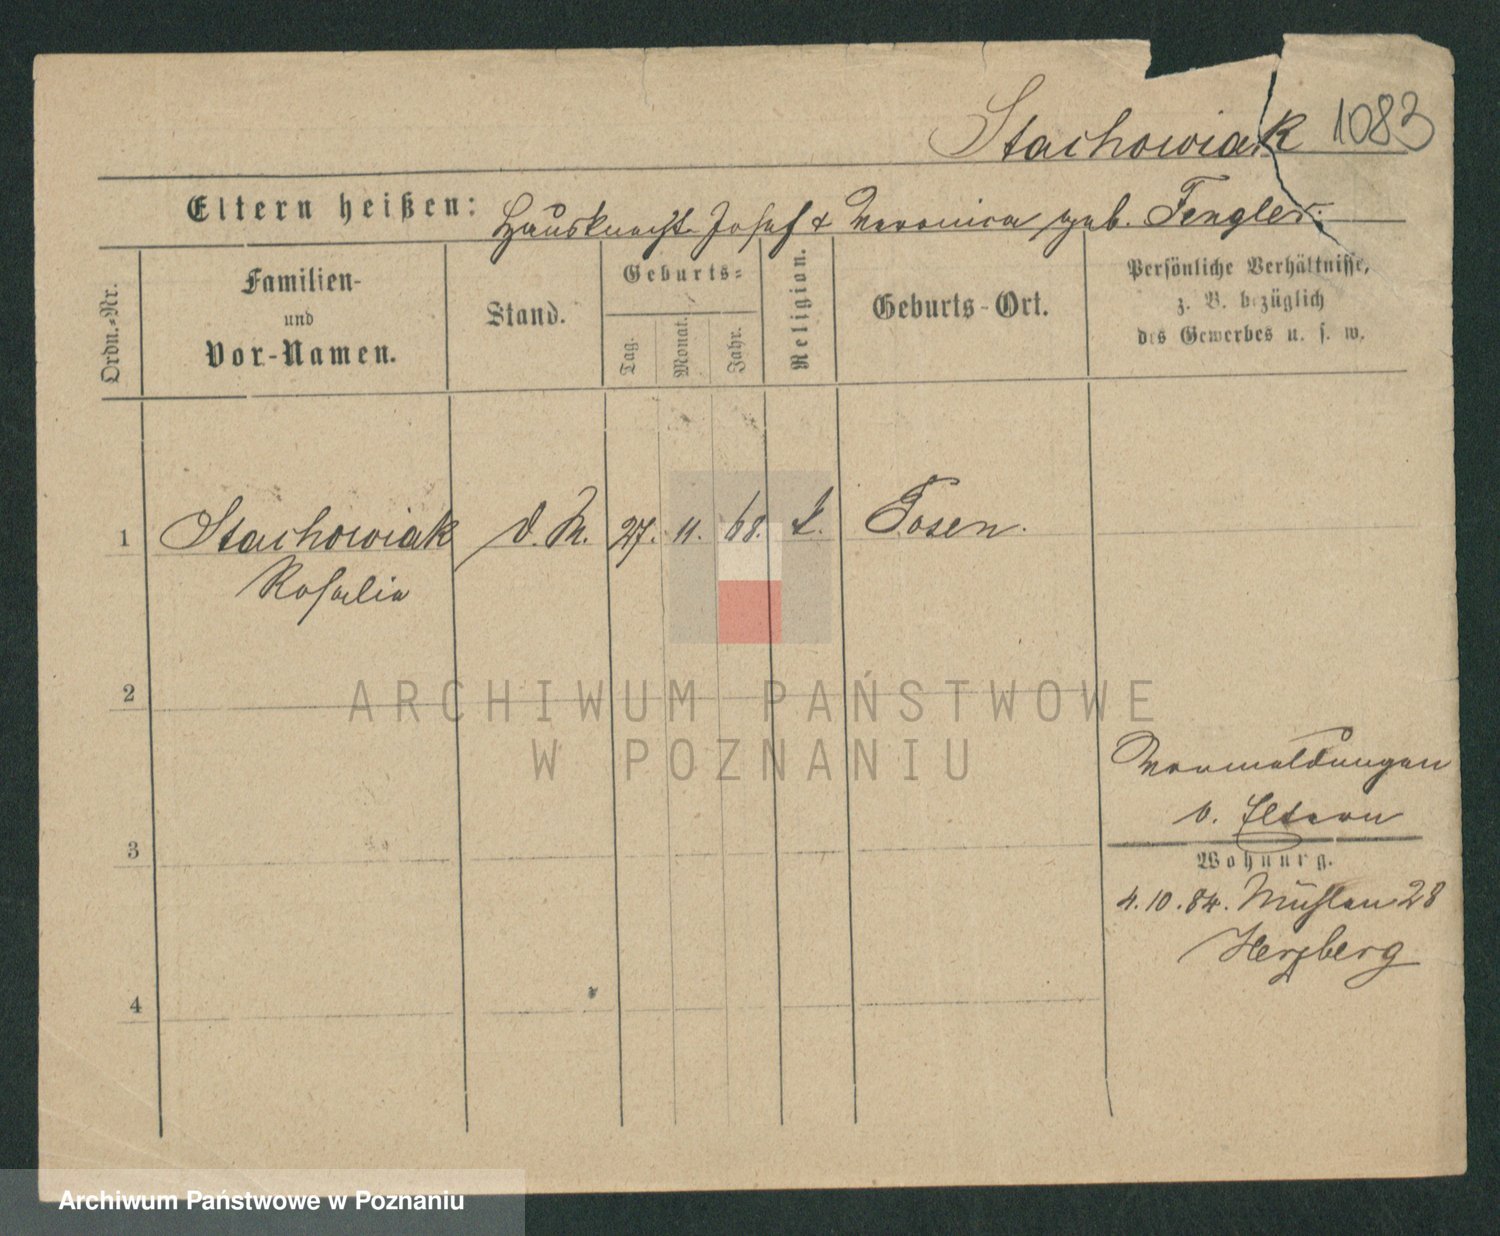 Stachowiak 1083
Eltern heißen: Hausknecht Josef & Veronica geb. Fengler.
Ordn.-Nr.
Familien-
und
Vor-Namen.
Stand.
Geburts-
Tag.
Monat.
Jahr.
Religion.
Geburts-Ort.
Persönliche Verhältnisse,
z. B. bezüglich
des Gewerbes u. s. w.
1 Stachowiak d. M. 27. 11. 68. k. Posen.
Rosalie
2
ARCHIWUM PAŃSTWOWE
W POZNANIU
Vormeldungen
b. Eltern
3
Wohnung.
4. 10. 84. Mühlen 28
Herzberg
4
Archiwum Państwowe w Poznaniu